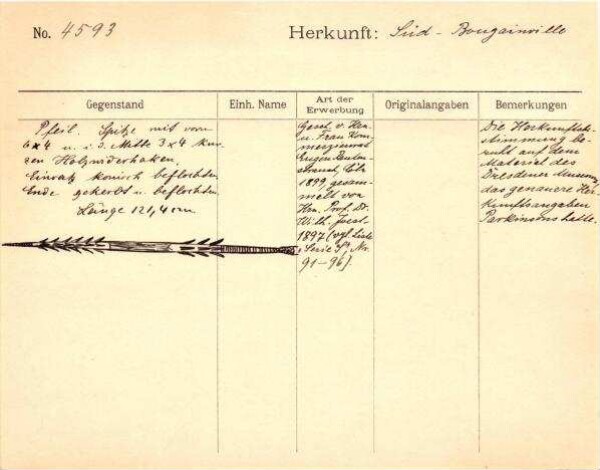 No. 4593
Herkunft: Süd-Bougainville
Gegenstand
Einh. Name
Art der Erwerbung
Originalangaben
Bemerkungen
Pfeil. Spitze mit vorn
6 x 4 u. i. d. Mitte 3 x 4 kur-
zen Holzwiderhaken.
Einsatz konisch beflochten
Ende gekerbt u. beflochten
Länge 121,4 cm
Gesch. v. Hrn.
u. Frau Kom-
merzienrat
Eugen Rauten-
strauch, Cöln
1899 gesam-
melt von
Hrn. Prof. Dr.
Wilh. Joest
1897 (vgl. Liste
Serie Nr.
91-96).
Die Herkunftsbe-
stimmung be-
ruht auf dem
Material des
Dresdener Museums,
das genauere Her-
kunftsangaben
Parkinsons hatte.